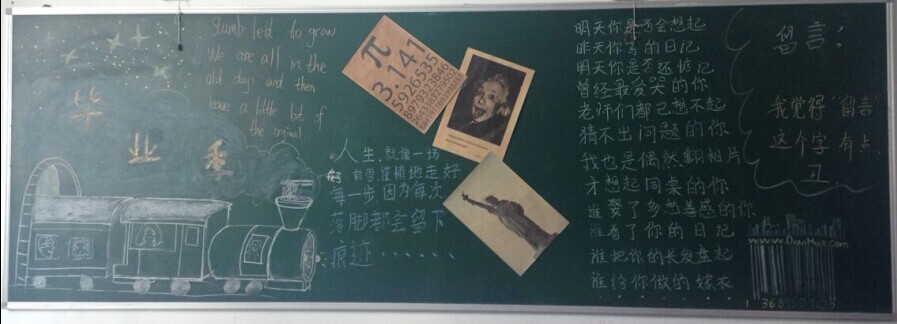 Stumb led to grow
We are all in the
old days and then
leave a little bit of
the orginal
毕
业
季
人生,就像一场
每一步,因为每次
落脚都会留下
痕迹......
π
3.141
5926535
8979323846
明天你是否会想起
昨天你写的日记
明天你是否还惦记
曾经最爱哭的你
老师们都已想不起
猜不出问题的你
我也是偶然翻相片
才想起同桌的你
谁娶了多愁善感的你
谁看了你的日记
谁把你的长发盘起
谁给你做的嫁衣
留言:
我觉得"留言"
这个字有点
丑